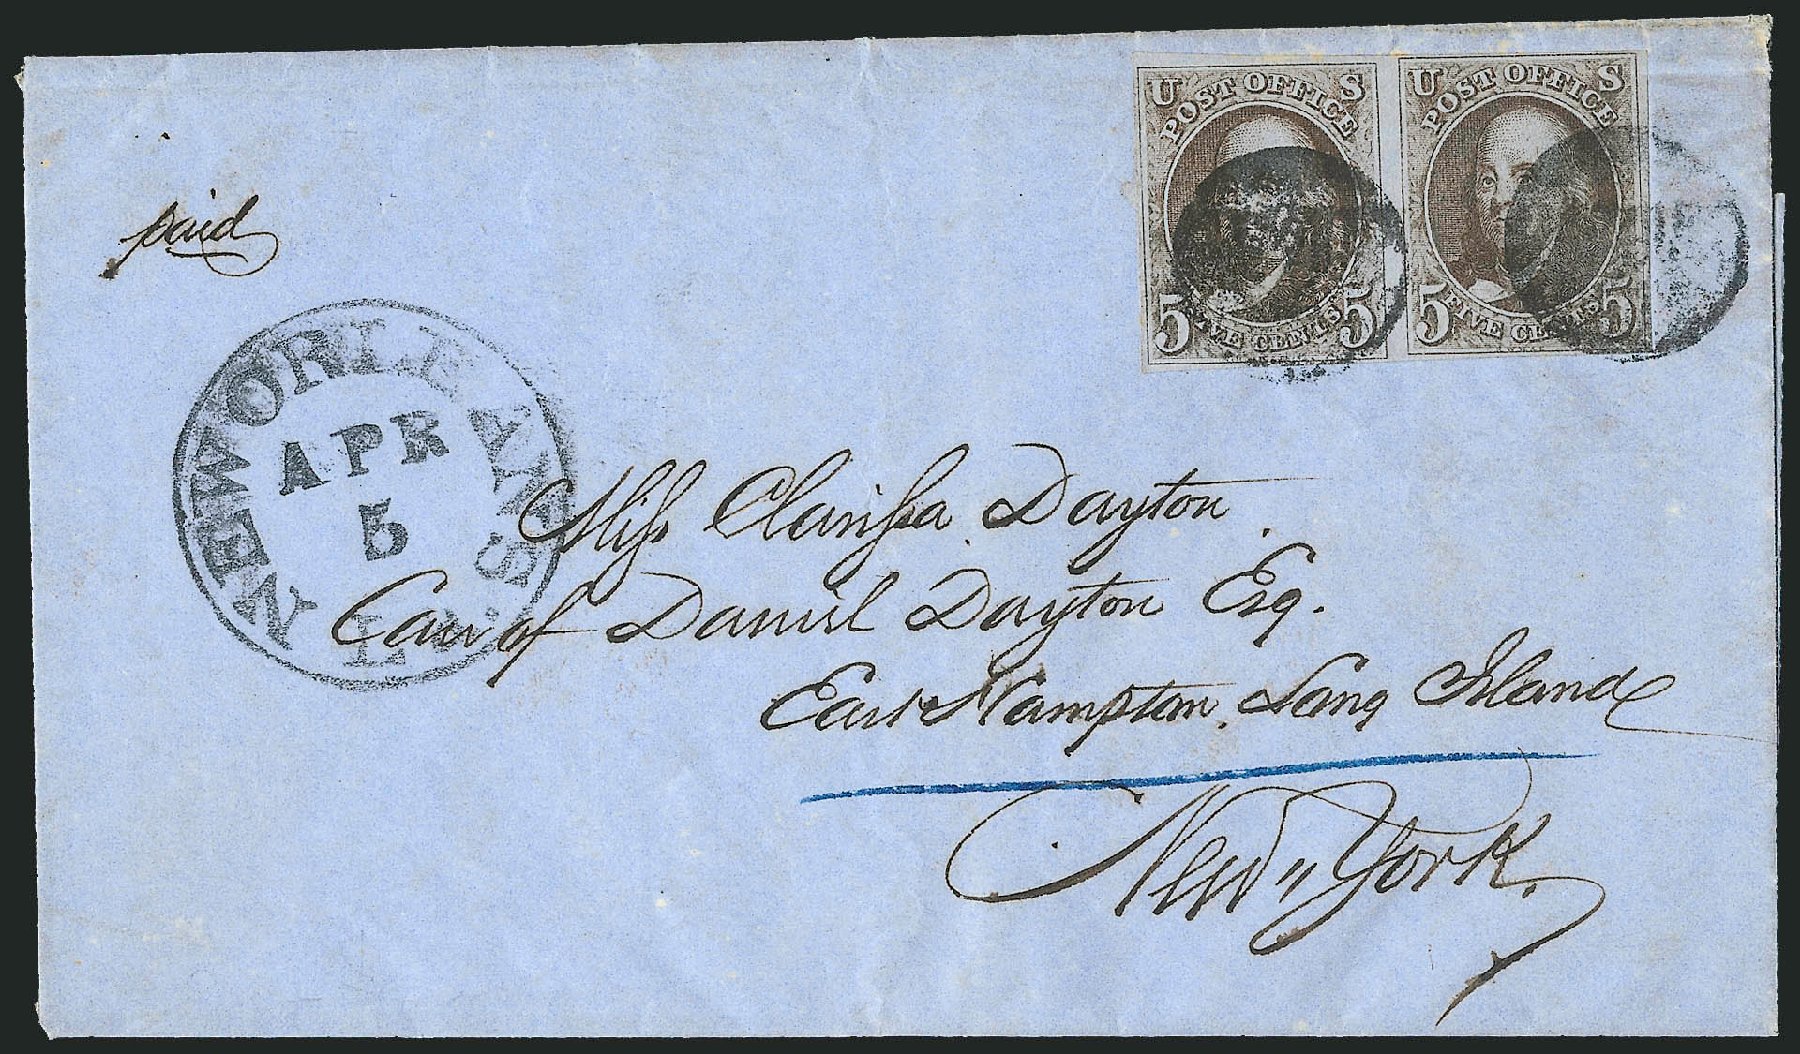 U S U S
POST OFFICE POST OFFICE
5 FIVE CENTS 5 5 FIVE CENTS 5
paid
NEW ORLEANS La.
APR
5
Miss Clarissa Dayton
Care of Daniel Dayton Esq.
East Hampton, Long Island
New York.